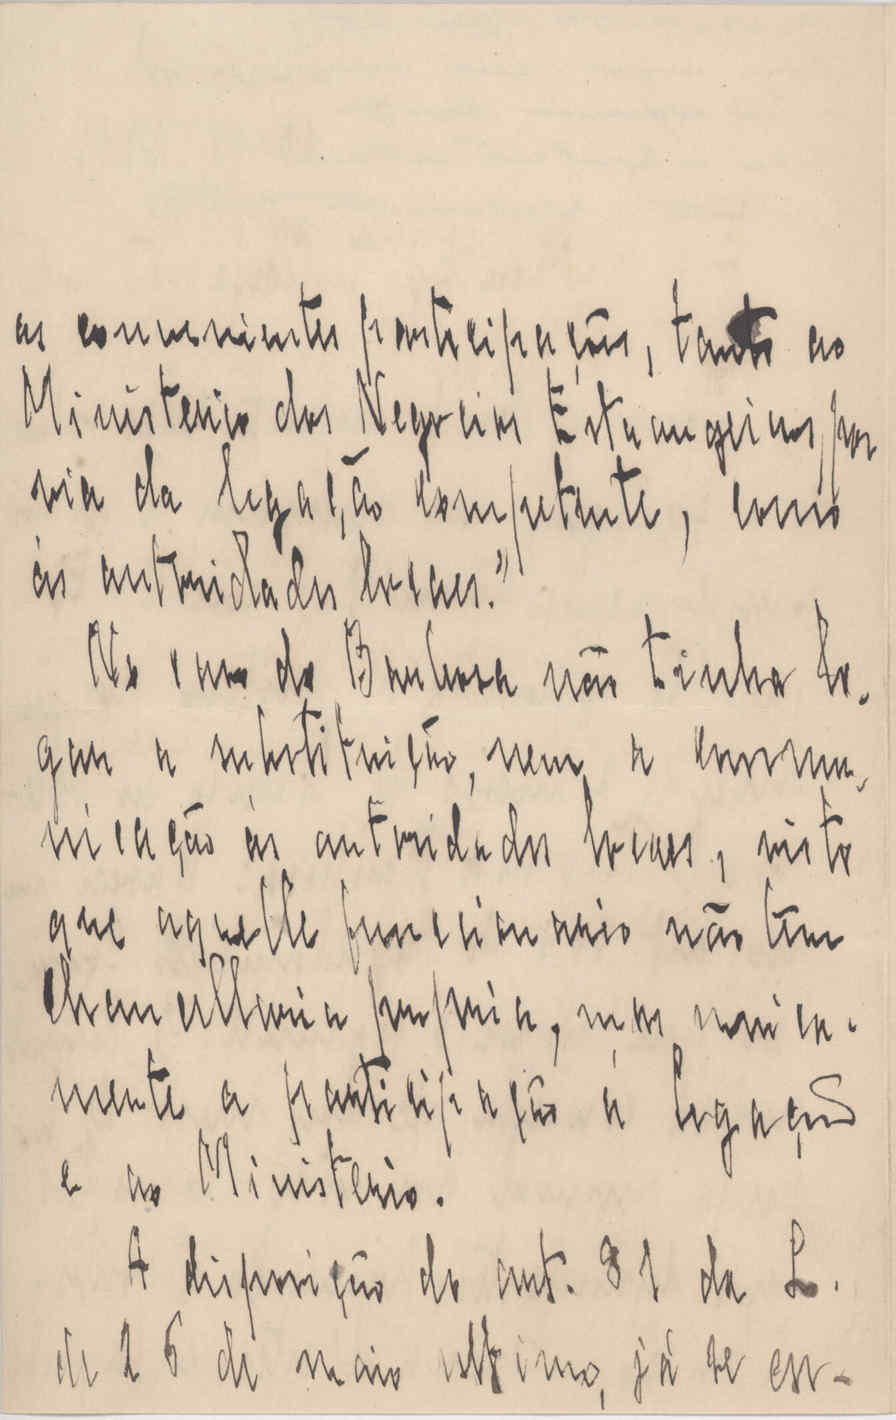 as convenientes participações, tanto ao
Ministerio dos Negocios Estrangeiros, por
via da legação competente, como
ás autoridades locaes."
No caso do Barbosa não tinha lo-
gar a substituição, nem a commu-
nicação ás autoridades locaes, visto
que aquelle funccionario não tem
chancellaria propria, mas unica-
mente a participação á legação
e ao Ministerio.
A disposição do art. 81 da L.
de 26 de maio ultimo, já se es-